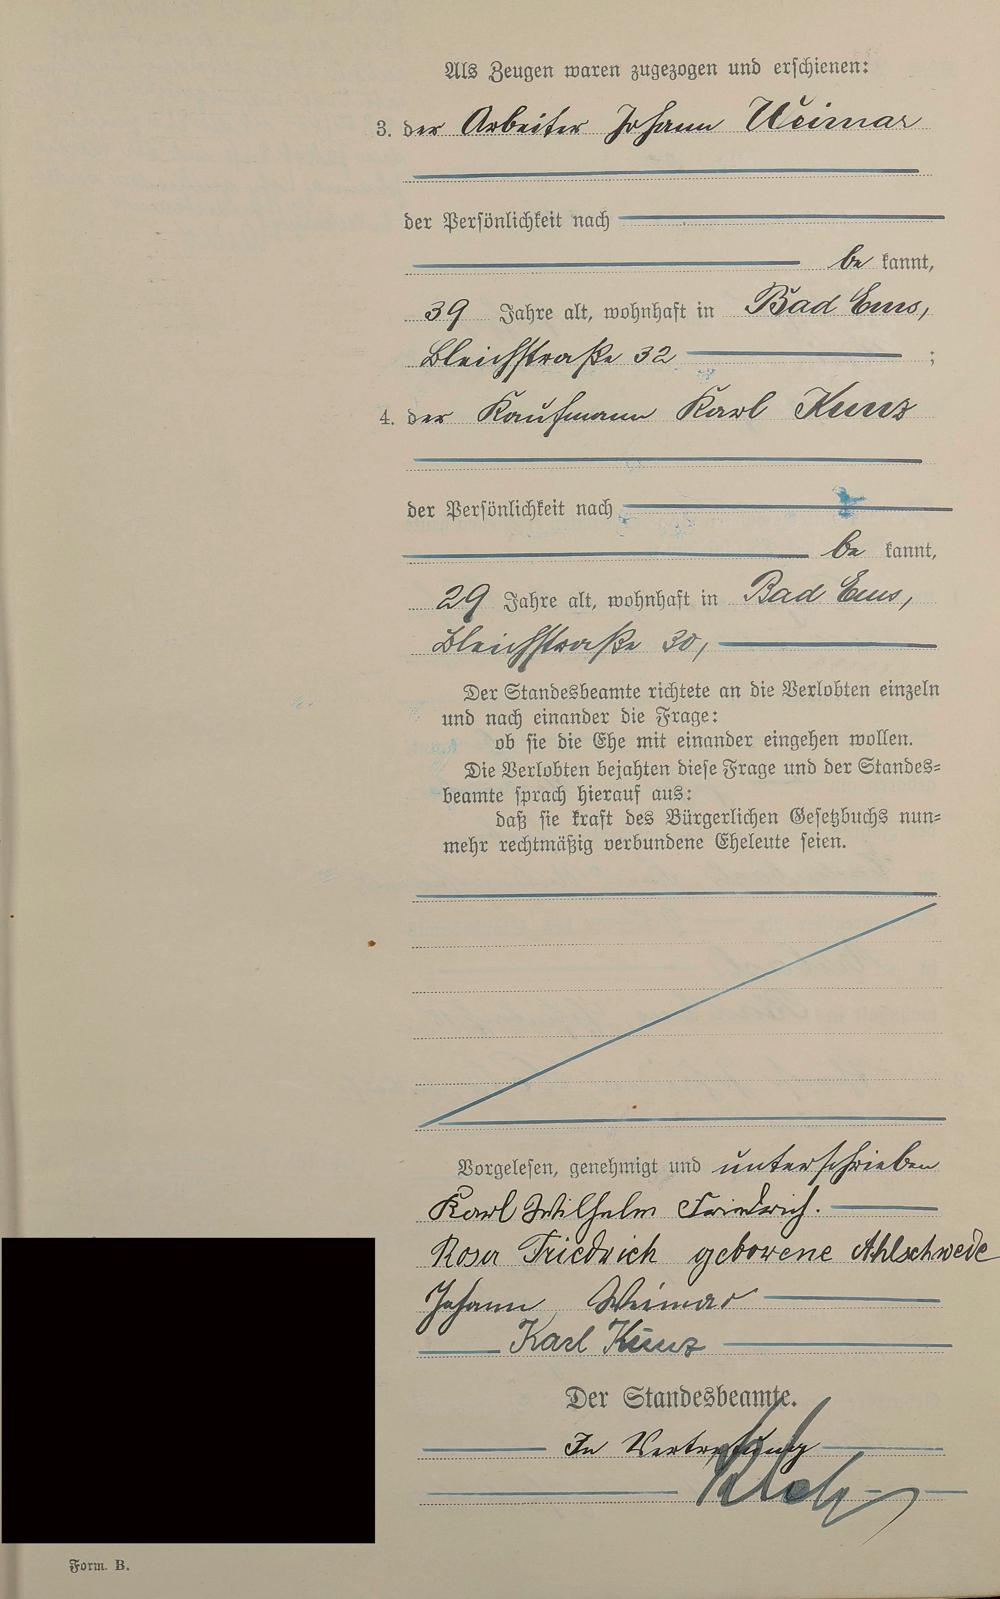 Als Zeugen waren zugezogen und erschienen:
3. der Arbeiter Johann Weimar
der Persönlichkeit nach
be kannt,
39 Jahre alt, wohnhaft in Bad Ems,
Bleichstraße 32 ;
4. der Kaufmann Karl Kunz
der Persönlichkeit nach
be kannt,
29 Jahre alt, wohnhaft in Bad Ems,
Bleichstraße 30,
Der Standesbeamte richtete an die Verlobten einzeln
und nach einander die Frage:
ob sie die Ehe mit einander eingehen wollen.
Die Verlobten bejahten diese Frage und der Standes=
beamte sprach hierauf aus:
daß sie kraft des Bürgerlichen Gesetzbuchs nun=
mehr rechtmäßig verbundene Eheleute seien.
Vorgelesen, genehmigt und unterschrieben
Karl Wilhelm Friedrich.
Rosa Friedrich geborene Ahlschwede
Johann Weimar
Karl Kunz
Der Standesbeamte.
In Vertretung
Form. B.